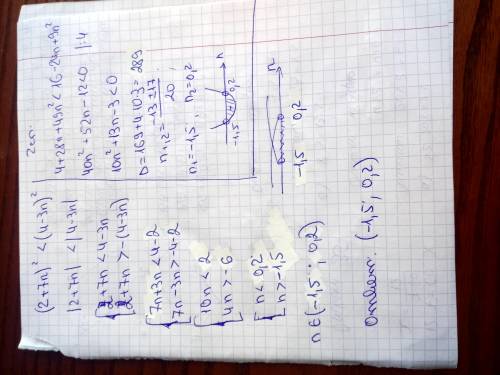 (2+7n)² < (4-3n)²
|2+7n| < |4-3n|
{ 2+7n < 4-3n
2+7n > -(4-3n)
{ 7n+3n < 4-2
7n-3n > -4-2
{ 10n < 2
4n > -6
{ n < 0,2
n > -1,5
n∈(-1,5; 0,2)
2 сп.
4+28n+49n² < 16-24n+9n²
40n²+52n-12<0 |:4
10n²+13n-3<0
D=169+4·10·3=289
n₁,₂= (-13±17)/20 ;
n₁=-1,5, n₂=0,2
-1,5 0,2 n
-1,5 0,2 n
Ответ: (-1,5; 0,2)